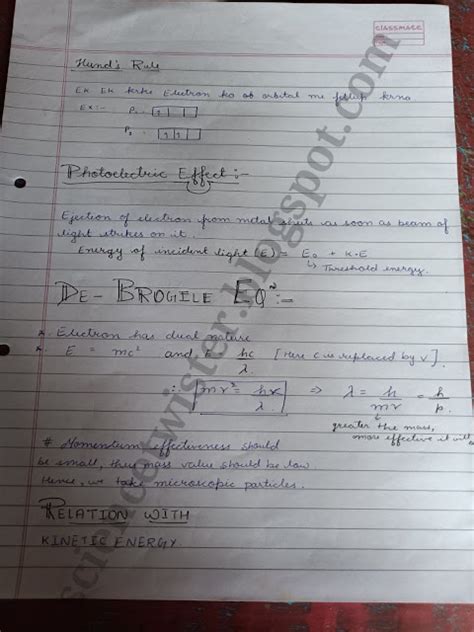 classmate
Hund's Rule
Ek Ek krke Electron ko ob orbital me fillup krna
Ex:- P₁
P₂
Photoelectric Effect :-
Ejection of electron from metal shuts as soon as beam of
light strikes on it.
Energy of incident light (E) = E₀ + K.E
↳ Threshold energy.
DE- BROGILE EQⁿ:-
* Electron has dual nature
* E = mc² and hc/λ [Here c is replaced by v]
∴ mv² = hv/λ ⇒ λ = h/mv = h/p.
greater the mass,
more effective it will
# Momentum effectiveness should
be small, thus mass value should be low
Hence, we take microscopic particles.
RELATION WITH
KINETIC ENERGY
sciencetwister.blogspot.com